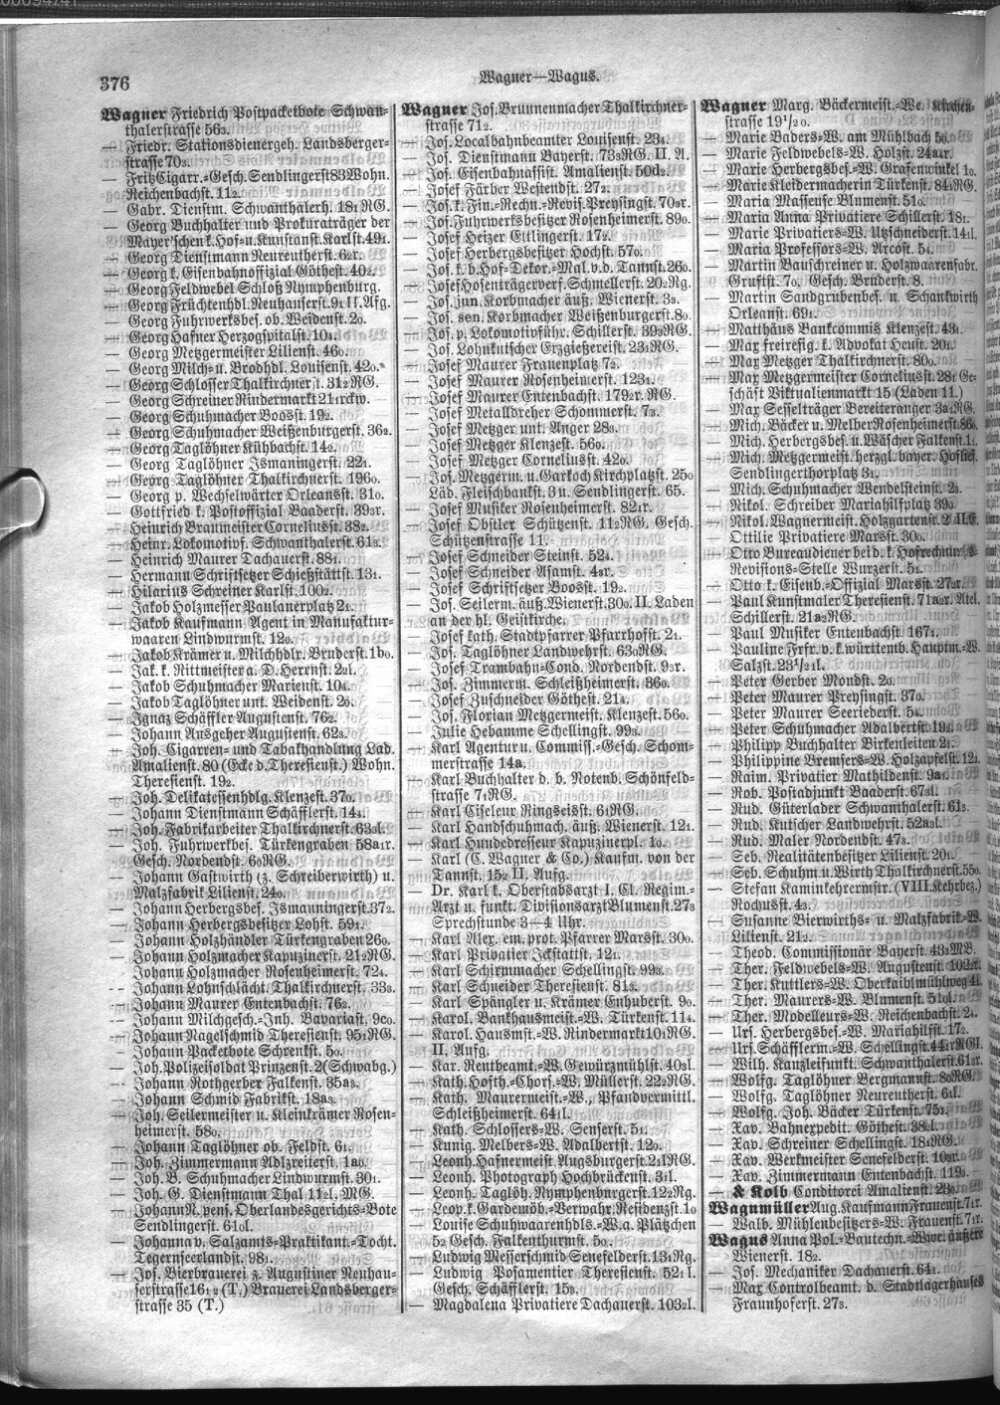 376
Wagner—Wagus.
Wagner Friedrich Postpacketbote Schwan-
thalerstrasse 56₃.
— Friedr. Stationsdienergeh. Landsberger-
strasse 70₃.
— Fritz Cigarr.-Gesch. Sendlingerst 83 Wohn.
Reichenbachst. 11₂.
— Gabr. Dienstm. Schwanthalerh. 18₁ RG.
— Georg Buchhalter und Prokuraträger der
Mayer'schen k. Hof- u. Kunstanst. Karlst. 49₁.
— Georg Dienstmann Neureutherst. 6₂r.
— Georg k. Eisenbahnoffizial Göthest. 40₂.
— Georg Feldwebel Schloß Nymphenburg.
— Georg Früchtenhdl. Neuhauserst. 9₁ II. Afg.
— Georg Fuhrwerksbes. ob. Weidenst. 2₀.
— Georg Hafner Herzogspitalst. 10₁.
— Georg Metzgermeister Lilienst. 46₀.
— Georg Milch- u. Brodhdl. Louisenst. 42₀.
— Georg Schlosser Thalkirchnerst. 31₂ RG.
— Georg Schreiner Rindermarkt 21₁rckw.
— Georg Schuhmacher Boosst. 19₂.
— Georg Schuhmacher Weißenburgerst. 36₂.
— Georg Taglöhner Kühbachst. 14₂.
— Georg Taglöhner Ismaningerst. 22₁.
— Georg Taglöhner Thalkirchnerst. 196₀.
— Georg p. Wechselwärter Orleansst. 31₀.
— Gottfried k. Postoffizial Baaderst. 39₃r.
— Heinrich Braumeister Corneliusst. 38₂.
— Heinr. Lokomotivf. Schwanthalerst. 61₃.
— Heinrich Maurer Dachauerst. 88₁.
— Hermann Schriftsetzer Schießstättst. 13₁.
— Hilarius Schreiner Karlst. 100₂.
— Jakob Holzmesser Paulanerplatz 2₁.
— Jakob Kaufmann Agent in Manufaktur-
waaren Lindwurmst. 12₀.
— Jakob Krämer u. Milchhdlr. Bruderst. 1b₀.
— Jak. k. Rittmeister a. D. Herrnst. 2₂l.
— Jakob Schuhmacher Marienst. 10₄.
— Jakob Taglöhner unt. Weidenst. 2₀.
— Ignaz Schäffler Augustenst. 76₂.
— Johann Ausgeher Augustenst. 62₃.
— Joh. Cigarren- und Tabakhandlung Lad.
Amalienst. 80 (Ecke d. Theresienst.) Wohn.
Theresienst. 19₂.
— Joh. Delikatessenhdlg. Klenzest. 37₀.
— Johann Dienstmann Schäfflerst. 14₁.
— Joh. Fabrikarbeiter Thalkirchnerst. 63₃l.
— Joh. Fuhrwerkbes. Türkengraben 58a₁r.
Gesch. Nordendst. 6₀ RG.
— Johann Gastwirth (z. Schreiberwirth) u.
Malzfabrik Lilienst. 24₀.
— Johann Herbergsbes. Ismanningerst. 37₂.
— Johann Herbergsbesitzer Lohst. 59₁.
— Johann Holzhändler Türkengraben 26₀.
— Johann Holzmacher Kapuzinerst. 21₂ RG.
— Johann Holzmacher Rosenheimerst. 72₄.
— Johann Lohnschlächt. Thalkirchnerst. 33₃.
— Johann Maurer Entenbachst. 76₂.
— Johann Milchgesch.-Inh. Bavariast. 9c₀.
— Johann Nagelschmid Theresienst. 95₁ RG.
— Johann Packetbote Schrenkst. 5₀.
— Joh. Polizeisoldat Prinzenst. 2 (Schwabg.)
— Johann Rothgerber Falkenst. 35a₃.
— Johann Schmid Fabrikst. 18a₃.
— Joh. Seilermeister u. Kleinkrämer Rosen-
heimerst. 58₀.
— Johann Taglöhner ob. Feldst. 6₁.
— Joh. Zimmermann Adlzreiterst. 1a₀.
— Joh. B. Schuhmacher Lindwurmst. 30₁.
— Joh. G. Dienstmann Thal 11₂l. MG.
— Johann N. pens. Oberlandesgerichts-Bote
Sendlingerst. 61₀l.
— Johanna v. Salzamts-Praktikant.-Tocht.
Tegernseerlandst. 98₁.
— Jos. Bierbrauerei z. Augustiner Neuhau-
serstrasse 16₁₊₂ (T.) Brauerei Landsberger-
strasse 35 (T.)
Wagner Jos. Brunnenmacher Thalkirchner-
strasse 71₂.
— Jos. Localbahnbeamter Louisenst. 23₄.
— Jos. Dienstmann Bayerst. 73₃ RG. II. A.
— Jos. Eisenbahnassist. Amalienst. 50d₂.
— Josef Färber Westendst. 27₂.
— Jos. k. Fin.-Rechn.-Revis. Preysingst. 70₃r.
— Jos. Fuhrwerksbesitzer Rosenheimerst. 89₀.
— Josef Heizer Ettlingerst. 17₂.
— Josef Herbergsbesitzer Hochst. 57₀.
— Jos. k. b. Hof-Dekor.-Mal. v. d. Tannst. 26₀.
— Josef Hosenträgerverf. Schnellerst. 20₂ Rg.
— Jos. jun. Korbmacher äuß. Wienerst. 3₃.
— Jos. sen. Korbmacher Weißenburgerst. 8₀.
— Jos. p. Lokomotivführ. Schillerst. 39₃ RG.
— Jos. Lohnkutscher Erzgießereist. 23₁ RG.
— Josef Maurer Frauenplatz 7₂.
— Josef Maurer Rosenheimerst. 123₁.
— Josef Maurer Entenbachst. 179₂r. RG.
— Josef Metalldreher Schommerst. 7₃.
— Josef Metzger unt. Anger 28₃.
— Josef Metzger Klenzest. 56₀.
— Josef Metzger Corneliusst. 42₀.
— Jos. Metzgerm. u. Garkoch Kirchplatzst. 25₀
Läd. Fleischbankst. 3 u. Sendlingerst. 65.
— Josef Musiker Rosenheimerst. 82₁r.
— Josef Obstler Schützenst. 11₂ RG. Gesch.
Schützenstrasse 11.
— Josef Schneider Steinst. 52₄.
— Josef Schneider Asamst. 4₃r.
— Josef Schriftsetzer Boosst. 19₂.
— Jos. Seilerm. äuß. Wienerst. 30₀. II. Laden
an der hl. Geistkirche.
— Josef kath. Stadtpfarrer Pfarrhofst. 2₁.
— Jos. Taglöhner Landwehrst. 63₀ RG.
— Josef Trambahn-Cond. Nordendst. 9₃r.
— Jos. Zimmerm. Schleißheimerst. 36₀.
— Josef Zuschneider Göthest. 21₄.
— Jos. Florian Metzgermeist. Klenzest. 56₀.
— Julie Hebamme Schellingst. 99₂.
— Karl Agentur u. Commiss.-Gesch. Schom-
merstrasse 14a.
— Karl Buchhalter d. b. Notenb. Schönfeld-
strasse 7₁ RG.
— Karl Ciseleur Ringseisst. 6₁ RG.
— Karl Handschuhmach. äuß. Wienerst. 12₁.
— Karl Hundedresseur Kapuzinerpl. 1₀.
— Karl (C. Wagner & Co.) Kaufm. von der
Tannst. 15₂ II. Aufg.
— Dr. Karl k. Oberstabsarzt I. Cl. Regim.-
Arzt u. funkt. Divisionsarzt Blumenst. 27₃
Sprechstunde 3—4 Uhr.
— Karl Alex. em. prot. Pfarrer Marsst. 30₀.
— Karl Privatier Ickstattst. 12₁.
— Karl Schirmmacher Schellingst. 99₃.
— Karl Schneider Theresienst. 81₃.
— Karl Spängler u. Krämer Enhuberst. 9₀.
— Karol. Bankhausmeist.-W. Türkenst. 11₄.
— Karol. Hausmst.-W. Rindermarkt 10₁ RG.
II. Aufg.
— Kar. Rentbeamt.-W. Gewürzmühlst. 40₃l.
— Kath. Hofth.-Chorf.-W. Müllerst. 22₂ RG.
— Kath. Maurermeist.-W., Pfandvermittl.
Schleißheimerst. 64₁l.
— Kath. Schlossers-W. Senserst. 5₁.
— Kunig. Melbers-W. Adalbertst. 12₀.
— Leonh. Hafnermeist. Augsburgerst. 2₁l RG.
— Leonh. Photograph Hochbrückenst. 3₁l.
— Leonh. Taglöh. Nymphenburgerst. 12₂ Rg.
— Leop. k. Gardemöb.-Verwahr. Residenzst. 1₀
— Louise Schuhwaarenhdls.-W. a. Plätzchen
5₂ Gesch. Falkenthurmst. 5₀.
— Ludwig Messerschmid Senefelderst. 13₁ Rg.
— Ludwig Posamentier Theresienst. 52₁ l.
Gesch. Schäfflerst. 15₃.
— Magdalena Privatiere Dachauerst. 103₂l.
Wagner Marg. Bäckermeist.-We. Kirchen-
strasse 19¹/₂₀.
— Marie Baders-W. am Mühlbach 5₀.
— Marie Feldwebels-W. Holzst. 24a₁r.
— Marie Herbergsbes.-W. Grafenwinkel 1₀.
— Marie Kleidermacherin Türkenst. 84₂ RG.
— Maria Masseuse Blumenst. 51₀.
— Maria Anna Privatiere Schillerst. 18₁.
— Marie Privatiers-W. Utzschneiderst. 14₁l.
— Maria Professors-W. Arcost. 5₄.
— Martin Bauschreiner u. Holzwaarenfabr.
Gruftst. 7₀. Gesch. Bruderst. 8.
— Martin Sandgrubenbes. u. Schankwirth
Orleanst. 69₁.
— Matthäus Bankcommis Klenzest. 43₁.
— Max freiresig. k. Advokat Heust. 20₁.
— Max Metzger Thalkirchnerst. 80₀.
— Max Metzgermeister Corneliusst. 28₁ Ge-
schäft Viktualienmarkt 15 (Laden 11.)
— Max Sesselträger Bereiteranger 3a₁ RG.
— Mich. Bäcker u. Melber Rosenheimerst. 86₀.
— Mich. Herbergsbes. u. Wäscher Falkenst. 1₁.
— Mich. Metzgermeist. herzgl. bayer. Hoflief.
Sendlingerthorplatz 3₁.
— Mich. Schuhmacher Wendelsteinst. 2₃.
— Nikol. Schreiber Mariahilfplatz 39₀.
— Nikol. Wagnermeist. Holzgartenst. 2 II. G.
— Ottilie Privatiere Marsst. 30₀.
— Otto Bureaudiener bei d. k. Hofrechnn.-
Revisions-Stelle Wurzerst. 5₁.
— Otto k. Eisenb.-Offizial Marsst. 27₂r.
— Paul Kunstmaler Theresienst. 71a₂r. Atel.
Schillerst. 21a₂ RG.
— Paul Musiker Entenbachst. 167₁.
— Pauline Frfr. v. k. württemb. Hauptm.-W.
Salzst. 23¹/₂₁l.
— Peter Gerber Mondst. 2₀.
— Peter Maurer Preysingst. 37₀.
— Peter Maurer Seeriederst. 5₄.
— Peter Schuhmacher Adalbertst. 19₄.
— Philipp Buchhalter Birkenleiten 2₁.
— Philippine Bremsers-W. Holzapfelst. 12₃.
— Raim. Privatier Mathildenst. 9a₁.
— Rob. Postadjunkt Baaderst. 67₃l.
— Rud. Güterlader Schwanthalerst. 61₃.
— Rud. Kutscher Landwehrst. 52a₃l.
— Rud. Maler Nordendst. 47₃.
— Seb. Realitätenbesitzer Lilienst. 20₁.
— Seb. Schuhm. u. Wirth Thalkirchnerst. 55₀.
— Stefan Kaminkehrermstr. (VIII. Kehrbez.)
Rochusst. 4₃.
— Susanne Bierwirths- u. Malzfabrik.-W.
Lilienst. 21₂.
— Theod. Commissionär Bayerst. 43₃ MB.
— Ther. Feldwebels-W. Augustenst. 102₁r.
— Ther. Kuttlers-W. Oberkaiblmühlweg 4₁.
— Ther. Maurers-W. Blumenst. 51₀l.
— Ther. Modelleurs-W. Reichenbachst. 2₄.
— Urs. Herbergsbes.-W. Mariahilfst. 17₂.
— Urs. Schäfflerm.-W. Schellingst. 44₁r RGl.
— Wilh. Kanzleifunkt. Schwanthalerst. 61₃r.
— Wolfg. Taglöhner Bergmannst. 8₀ RG.
— Wolfg. Taglöhner Neureutherst. 6₁l.
— Wolfg. Joh. Bäcker Türkenst. 75₁.
— Xav. Bahnexpedit. Göthest. 38₄l.
— Xav. Schreiner Schellingst. 18₁ RG.
— Xav. Werkmeister Senefelderst. 10₃r.
— Xav. Zimmermann Entenbachst. 119₂.
— & Kolb Conditorei Amalienst. 23₀.
Wagnmüller Aug. Kaufmann Frauenst. 7₁r.
— Walb. Mühlenbesitzers-W. Frauenst. 7₁r.
Wagus Anna Pol.-Bautechn.-Wwe. äußere
Wienerst. 18₂.
— Jos. Mechaniker Dachauerst. 64₁.
— Max Controlbeamt. d. Stadtlagerhauses
Fraunhoferst. 27₃.